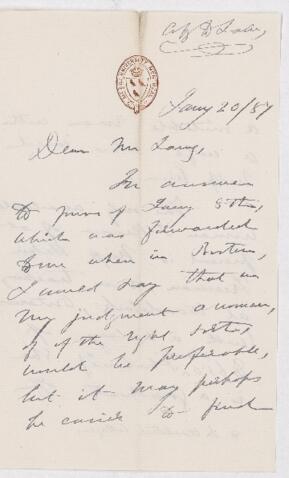 Jany 20/87
Dear Mr Laing,
In answer
to yours of Jany 8th,
which was forwarded
me when in Boston,
I would say that in
my judgment a woman,
if of the right sort,
would be preferable,
but it may perhaps
be easier to find